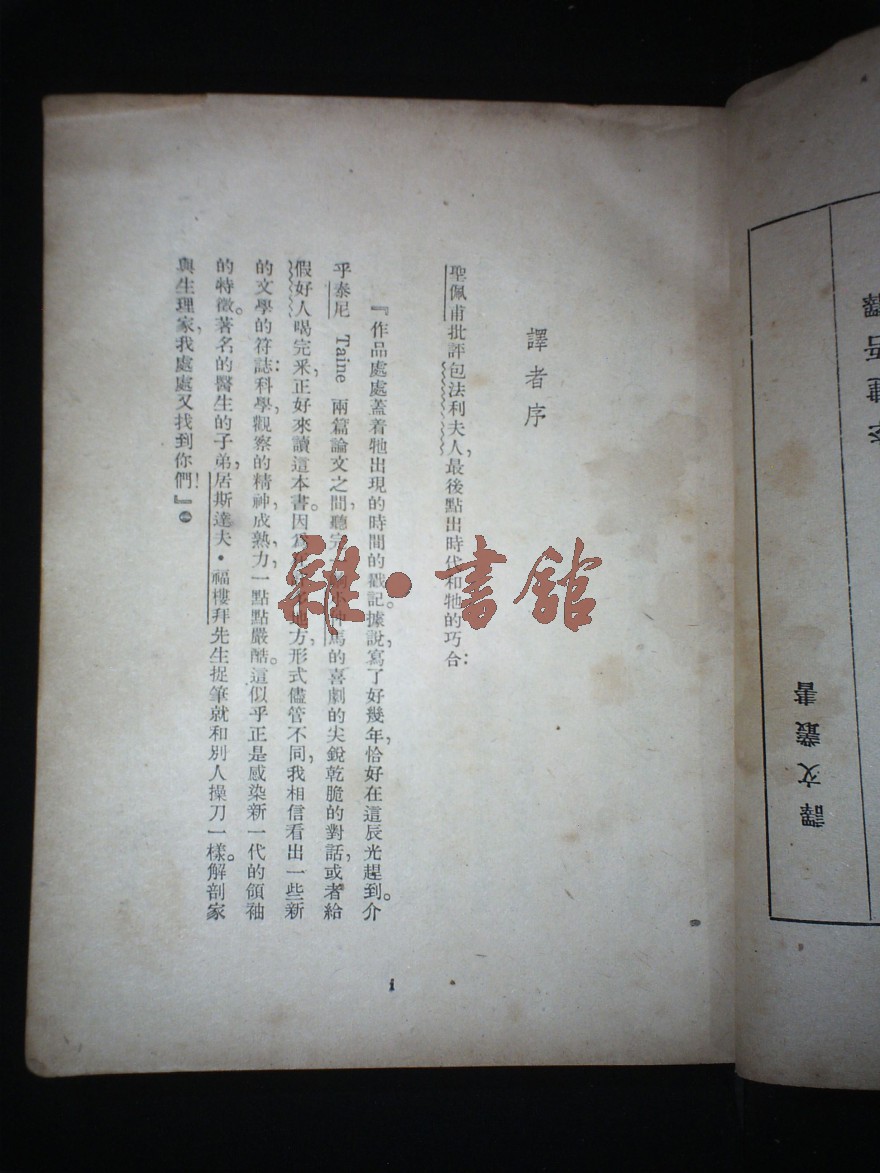 譯者序
聖佩甫批評包法利夫人，最後點出時代和牠的巧合：
『作品處處蓋着牠出現的時間的戳記。據說，寫了好幾年，恰好在這辰光趕到。介
乎泰尼 Taine 兩篇論文之間，聽完小仲馬的喜劇的尖銳乾脆的對話，或者給
假好人喝完釆，正好來讀這本書。因爲地方，形式儘管不同，我相信看出一些新
的文學的符誌：科學，觀察的精神，成熱，力，一點點嚴酷。這似乎正是感染新一代的領袖
的特徵。著名的醫生的子弟，居斯達夫•福樓拜先生捉筆就和別人操刀一樣。解剖家
與生理家，我處處又找到你們！』
i
雜•書館
譯文叢書